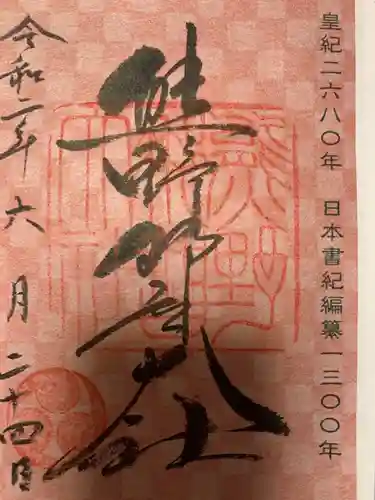 皇紀二六八〇年 日本書紀編纂一三〇〇年
熊野那智大社
令和二年六月二十四日